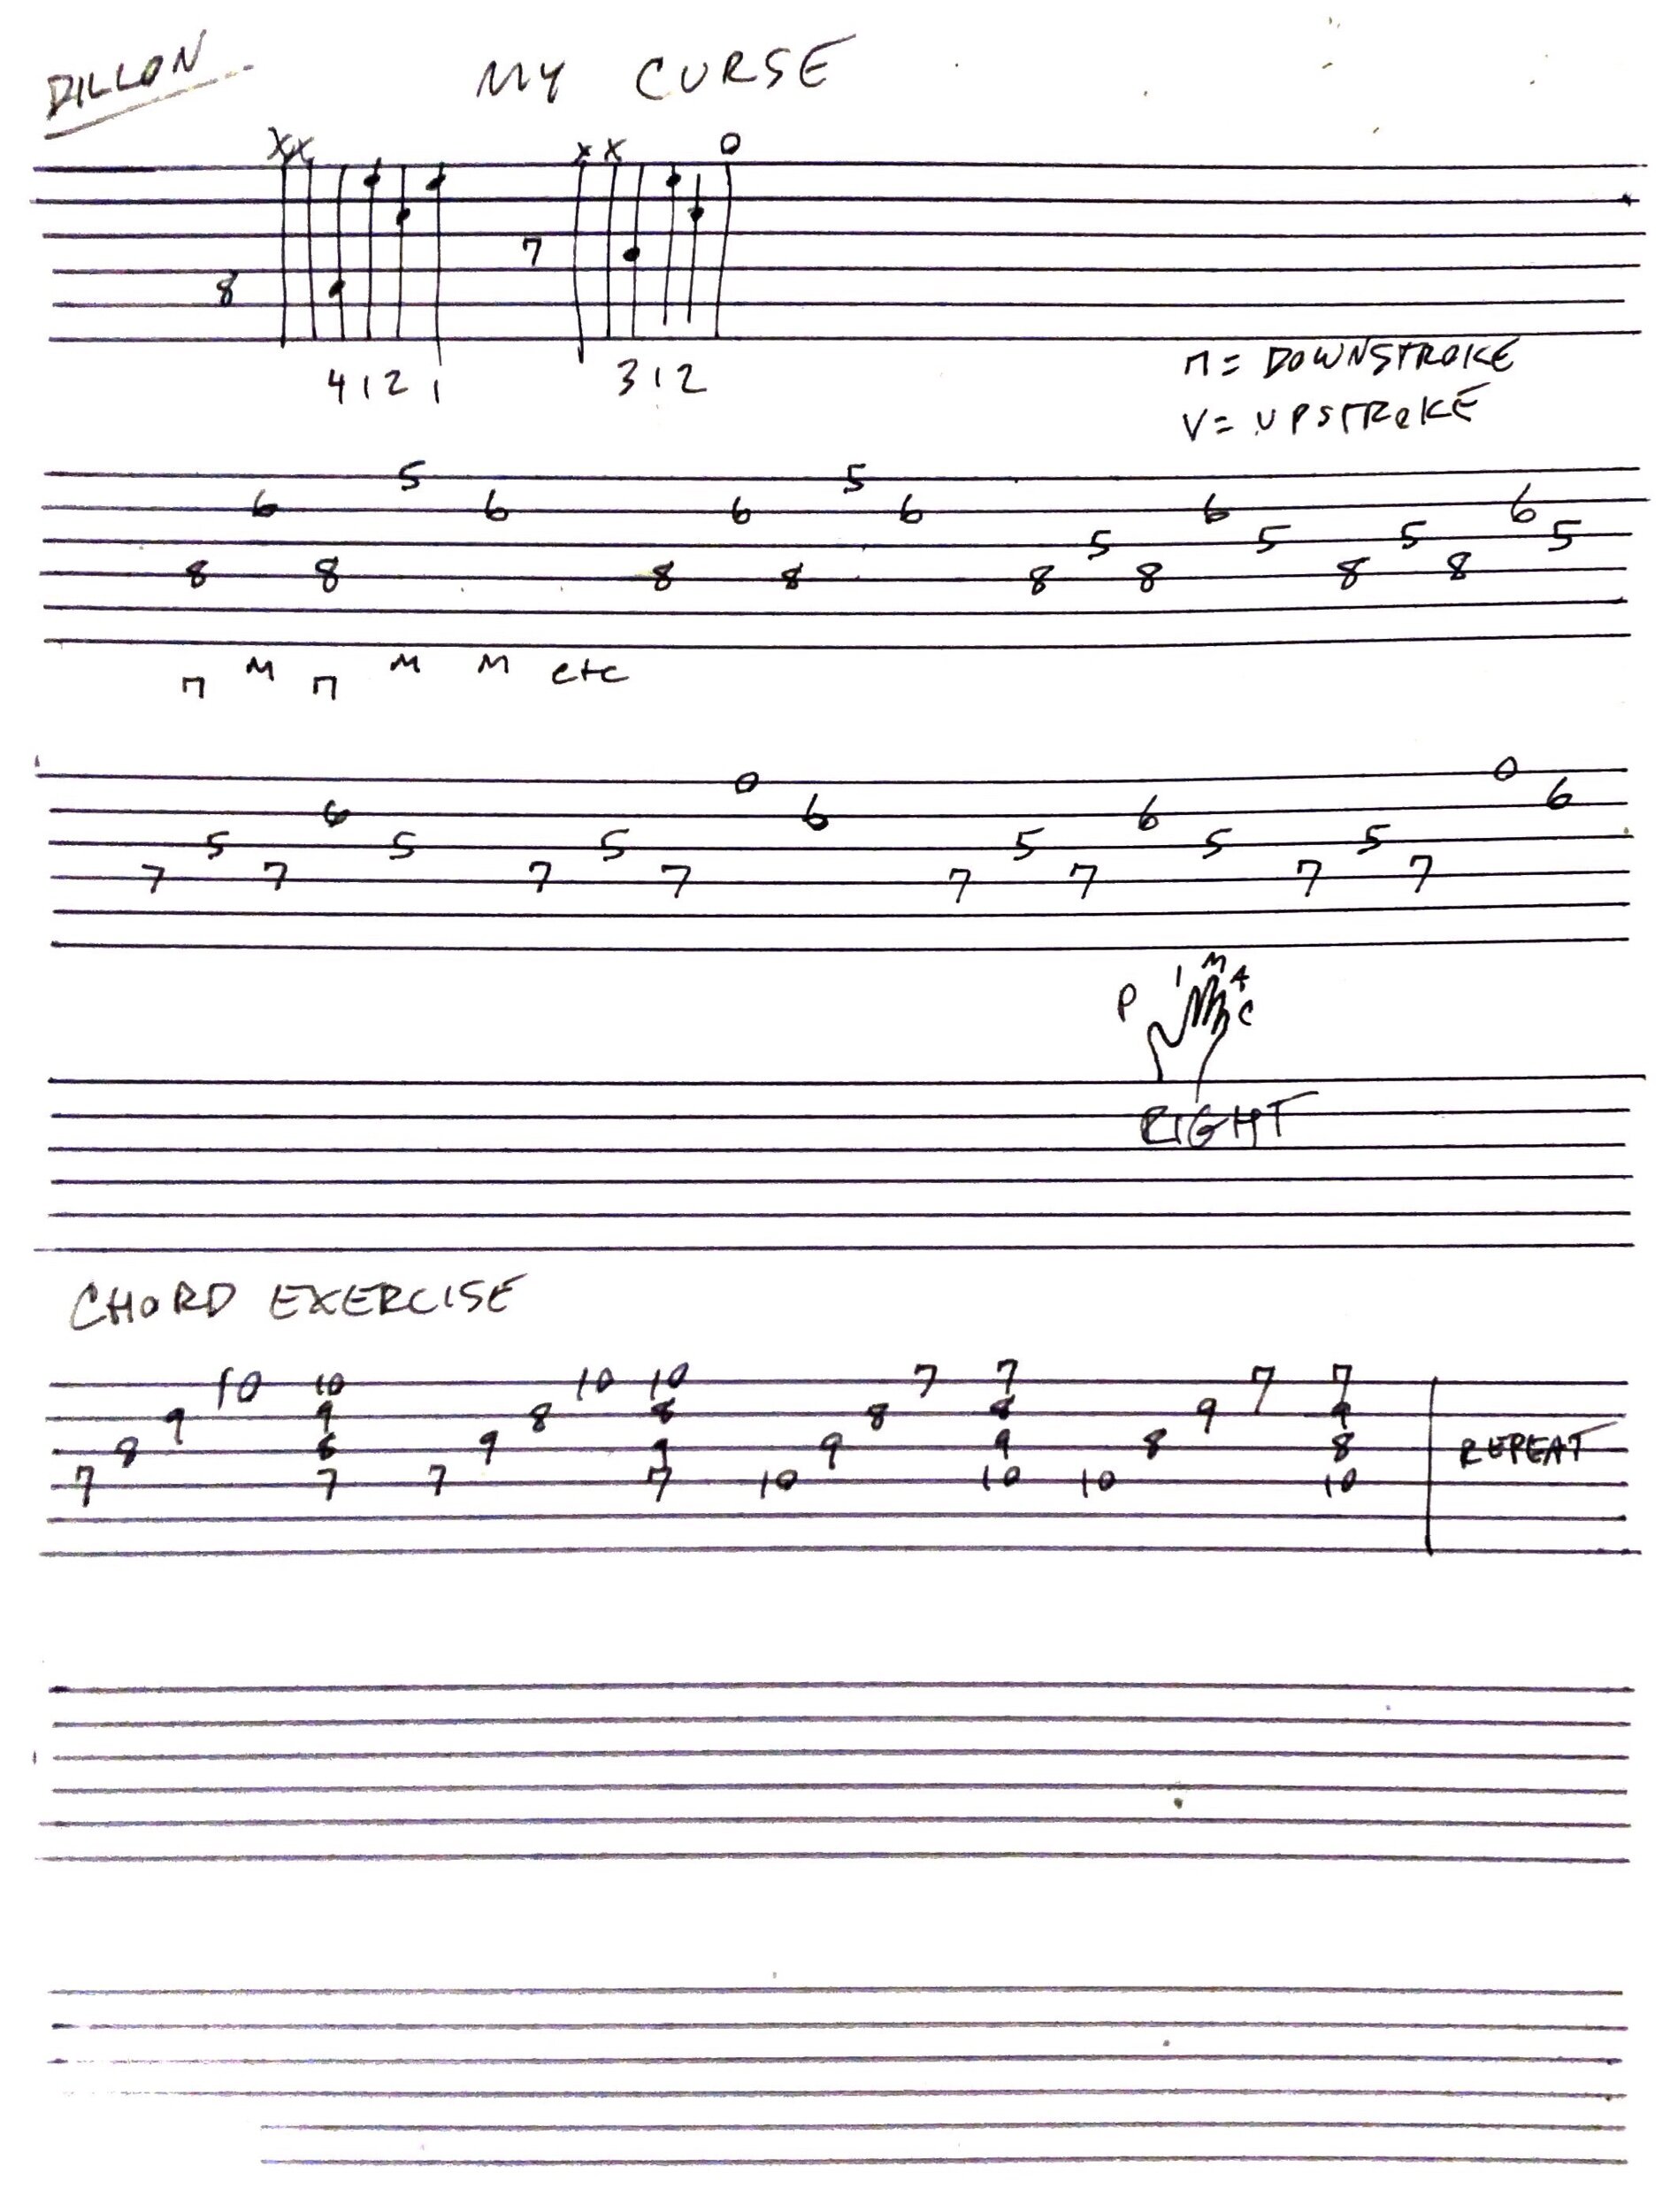 DILLON
MY CURSE
x x x x o
7
8
4 1 2 1 3 1 2
п = DOWNSTROKE
V = UPSTROKE
5 5
6 6 6 6 6 6
5 5 5 5
8 8 8 8 8 8 8 8
п M п M M etc
0 0
6 6 6 6
5 5 5 5 5 5
7 7 7 7 7 7 7 7
P I M A C
RIGHT
CHORD EXERCISE
10 10 10 10 7 7 7 7
9 9 8 8 8 8 9 9
8 8 9 9 9 9 8 8 REPEAT
7 7 7 7 10 10 10 10